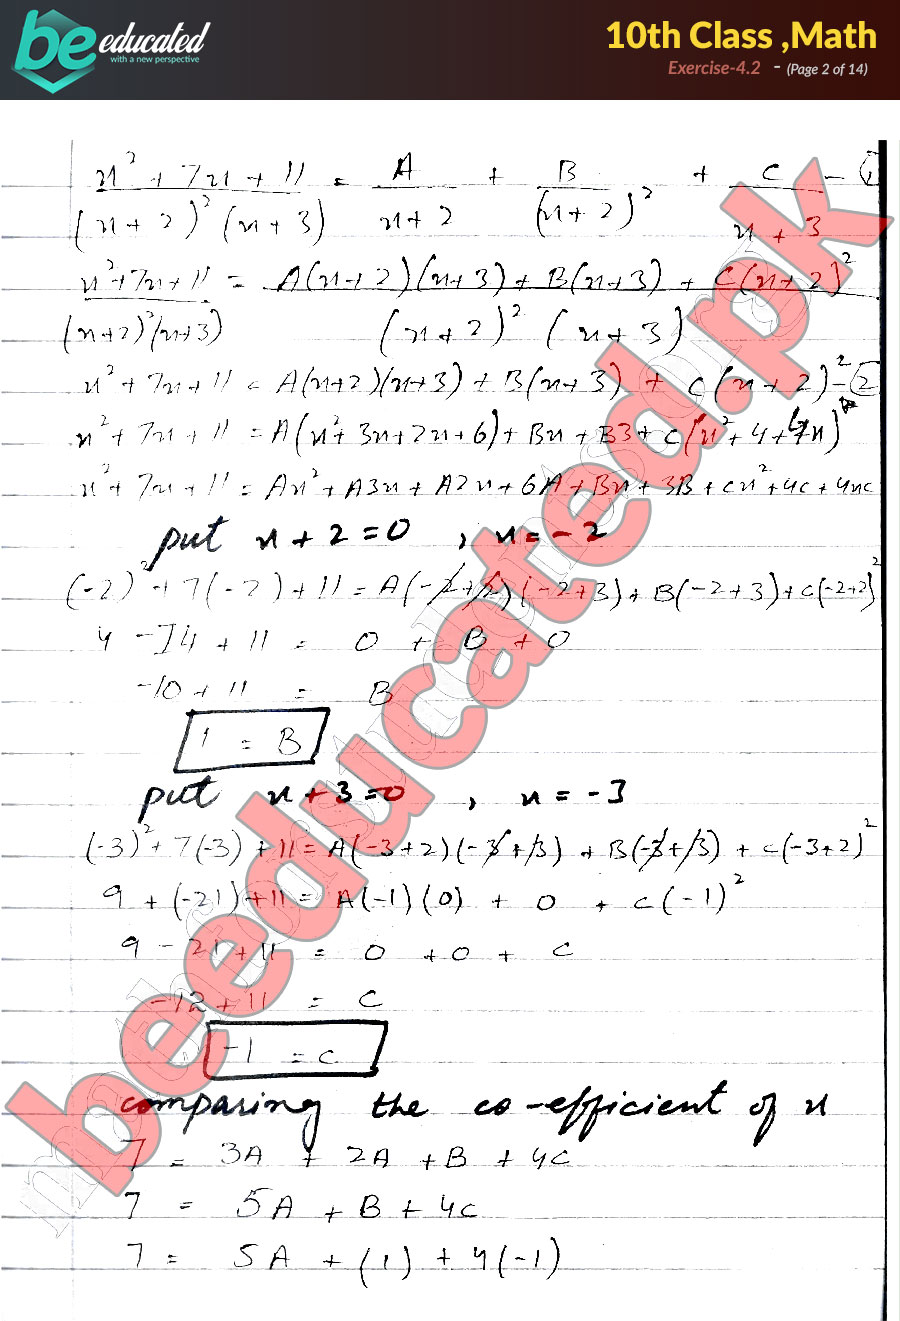 be educated
with a new perspective
10th Class ,Math
Exercise-4.2 - (Page 2 of 14)
x² + 7x + 11 / (x + 2)² (x + 3) = A / x + 2 + B / (x + 2)² + C / x + 3 - ①
x² + 7x + 11 / (x+2)²(x+3) = A(x+2)(x+3) + B(x+3) + C(x+2)² / (x+2)² (x+3)
x² + 7x + 11 = A(x+2)(x+3) + B(x+3) + C(x+2)² - ②
x² + 7x + 11 = A(x² + 3x + 2x + 6) + Bx + B3 + C(x² + 4 + 4x)
x² + 7x + 11 = Ax² + A3x + A2x + 6A + Bx + 3B + Cx² + 4C + 4xC
put x + 2 = 0 , x = -2
(-2)² + 7(-2) + 11 = A(-2+2)(-2+3) + B(-2+3) + C(-2+2)²
4 - 14 + 11 = 0 + B + 0
-10 + 11 = B
1 = B
put x + 3 = 0 , x = -3
(-3)² + 7(-3) + 11 = A(-3+2)(-3+3) + B(-3+3) + C(-3+2)²
9 + (-21) + 11 = A(-1)(0) + 0 + C(-1)²
9 - 21 + 11 = 0 + 0 + C
-12 + 11 = C
-1 = C
comparing the co-efficient of x
7 = 3A + 2A + B + 4C
7 = 5A + B + 4C
7 = 5A + (1) + 4(-1)
beeducated.pk